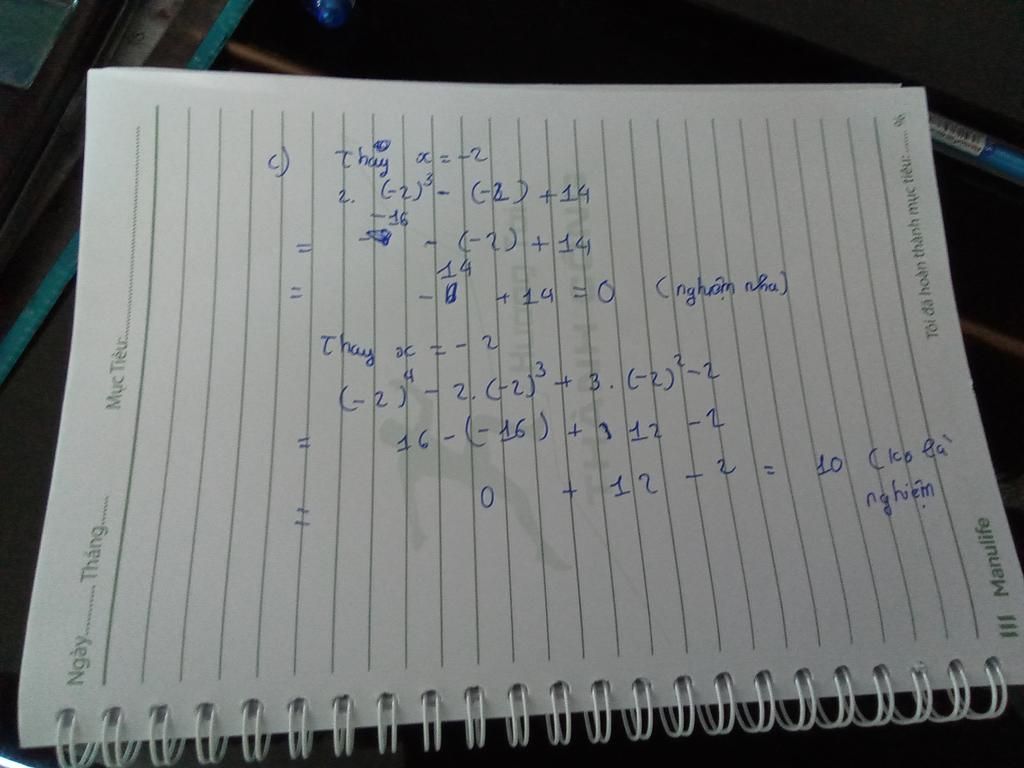 c) Thay x = -2
2. (-2)³ - (-2) + 14
= -16 - (-2) + 14
= -14 + 14 = 0 (nghiệm nha)
Thay x = -2
(-2)⁴ - 2. (-2)³ + 3. (-2)² - 2
= 16 - (-16) + 12 - 2
= 0 + 12 - 2 = 10 (ko là
nghiệm
Ngày.......... Tháng........
Mục Tiêu:
Tôi đã hoàn thành mục tiêu: ........ %
Manulife